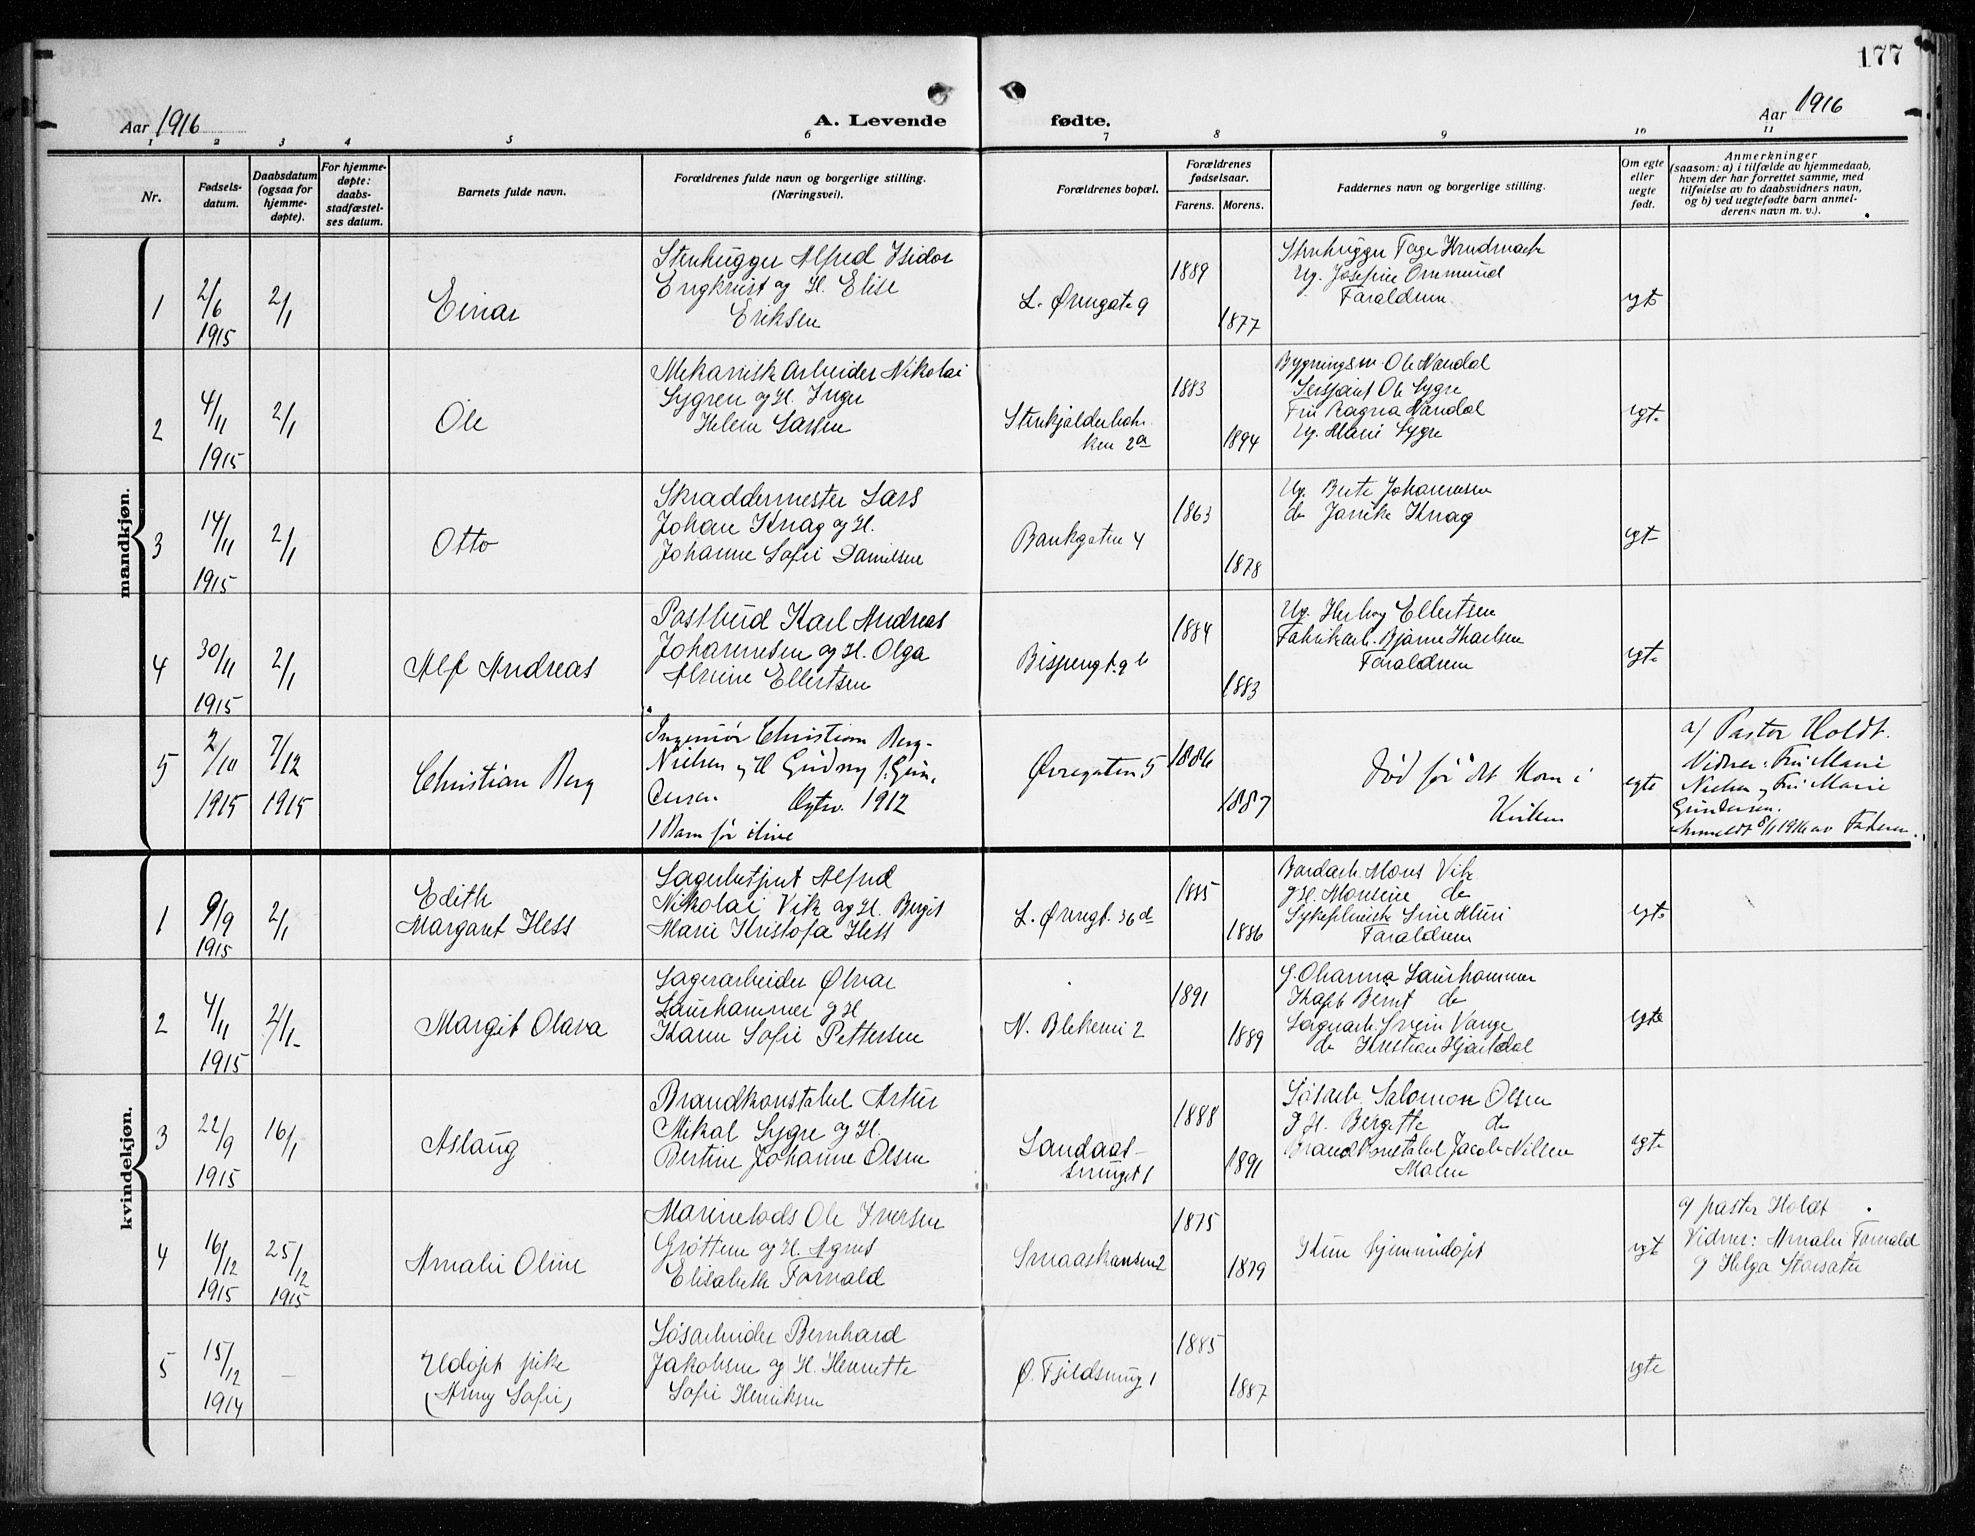 177
Aar 1916
A. Levende fødte.
Aar 1916
1 2 3 4 5 6 7 8 9 10 11
Nr.
Fødsels-
datum.
Daabsdatum
(ogsaa for
hjemme-
døpte).
For hjemme-
døpte:
daabs-
stadfæstel-
ses datum.
Barnets fulde navn.
Forældrenes fulde navn og borgerlige stilling.
(Næringsvei).
Forældrenes bopæl.
Forældrenes
fødselsaar.
Farens. Morens.
Faddernes navn og borgerlige stilling.
Om egte
eller
uegte
født.
Anmerkninger
(saasom: a) i tilfælde av hjemmedaab,
hvem der har forrettet samme, med
tilføielse av to daabsvidners navn,
og b) ved uegtefødte barn anmel-
derens navn m. v.).
mandkjøn.
1
2/6
1915
2/1
Einar
Stenhugger Alfred Isidor
Engkvist og H. Elise
Eriksen
L. Øvregate 9
1889
1877
Stenhugger Tage
Ug. Josefine
Forældrene
egte
2
4/11
1915
2/1
Ole
Mekanisk Arbeider Nikolai
Sygren og H. Inger
Helene Larsen
2a
1883
1894
Bygningsm. Ole Nandal
Sersjant Ole Sygre
Fru Ragna Nandal
Ug. Marie Sygre
egte
3
14/11
1915
2/1
Otto
Skræddermester Lars
Johan Knag og H.
Johanne Sofie Danielsen
Bankgaten 4
1863
1878
Ug. Berte Johannesen
do Janike Knag
egte
4
30/11
1915
2/1
Alf Andreas
Postbud Karl Andreas
Johannesen og H. Olga
Alvine Ellertsen
Bispengt. 9 b
1884
1883
Ug. Herborg Ellertsen
Fabrikarb. Bjarne Karlsen
Forældrene
egte
5
2/10
1915
7/12
1915
Christian Berg
Ingeniør Christian Berg-
Nielsen og H Gudny f. Gun-
dersen Egtev. 1912
1 Barn før ilive
Øvregaten 5
1886
1887
Død før det kom i
Kirken
egte
a) Pastor Holdt.
Vidner: Fru Marie
Nielsen og Fru Marie
Gundersen.
Anmeldt 8/1 1916 av Faderen.
kvindekjøn.
1
9/9
1915
2/1
Edith
Margaret Hess
Lagerbetjent Alfred
Nikolai Vik og H. Bergit
Marie Kristofa Hess
L. Øvregt. 36 d
1885
1886
Bordarb. Mons Vik
og H. Monsine do
Forældrene
egte
2
4/11
1915
2/1
Margit Olava
Lagerarbeider Olvar
Laurhammer og H
Karen Sofie Pettersen
N. Blekevei 2
1891
1889
G. Olianna Laurhammer
Kapt Bernt do
Lagerarb. Svein Vange
do Kristian Hjartdal
egte
3
22/9
1915
16/1
Aslaug
Brandkonstabel Artur
Mikal Sygre og H.
Bertine Johanne Olsen
Sandaas-
smuget 1
1888
1891
Løsarb. Salomon Olsen
g. H. Bergette do
Brandkonstabel Jacob Nilsen
Maren
egte
4
16/12
1915
25/12
1915
Amalie Oline
Marinelods Ole Iversen
Grøttem og H. Agnes
Elisabeth Farvald
Smaaskansen 2
1875
1879
Kun hjemmedøpt
egt
a) pastor Holdt
Vidner: Amalie Farvald
og Helga Storsæter
5
15/12
1914
—
Udøpt pike
(Anny Sofie)
Løsarbeider Bernhard
Jakobsen og H. Henrette
Sofie Henriksen
Ø. Fjeldsmug 1
1885
1887
egte